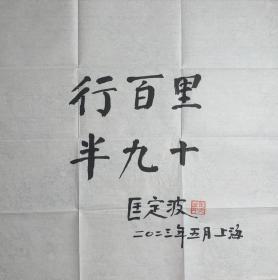 行百里
半九十
匡定波
二〇二三年五月上海